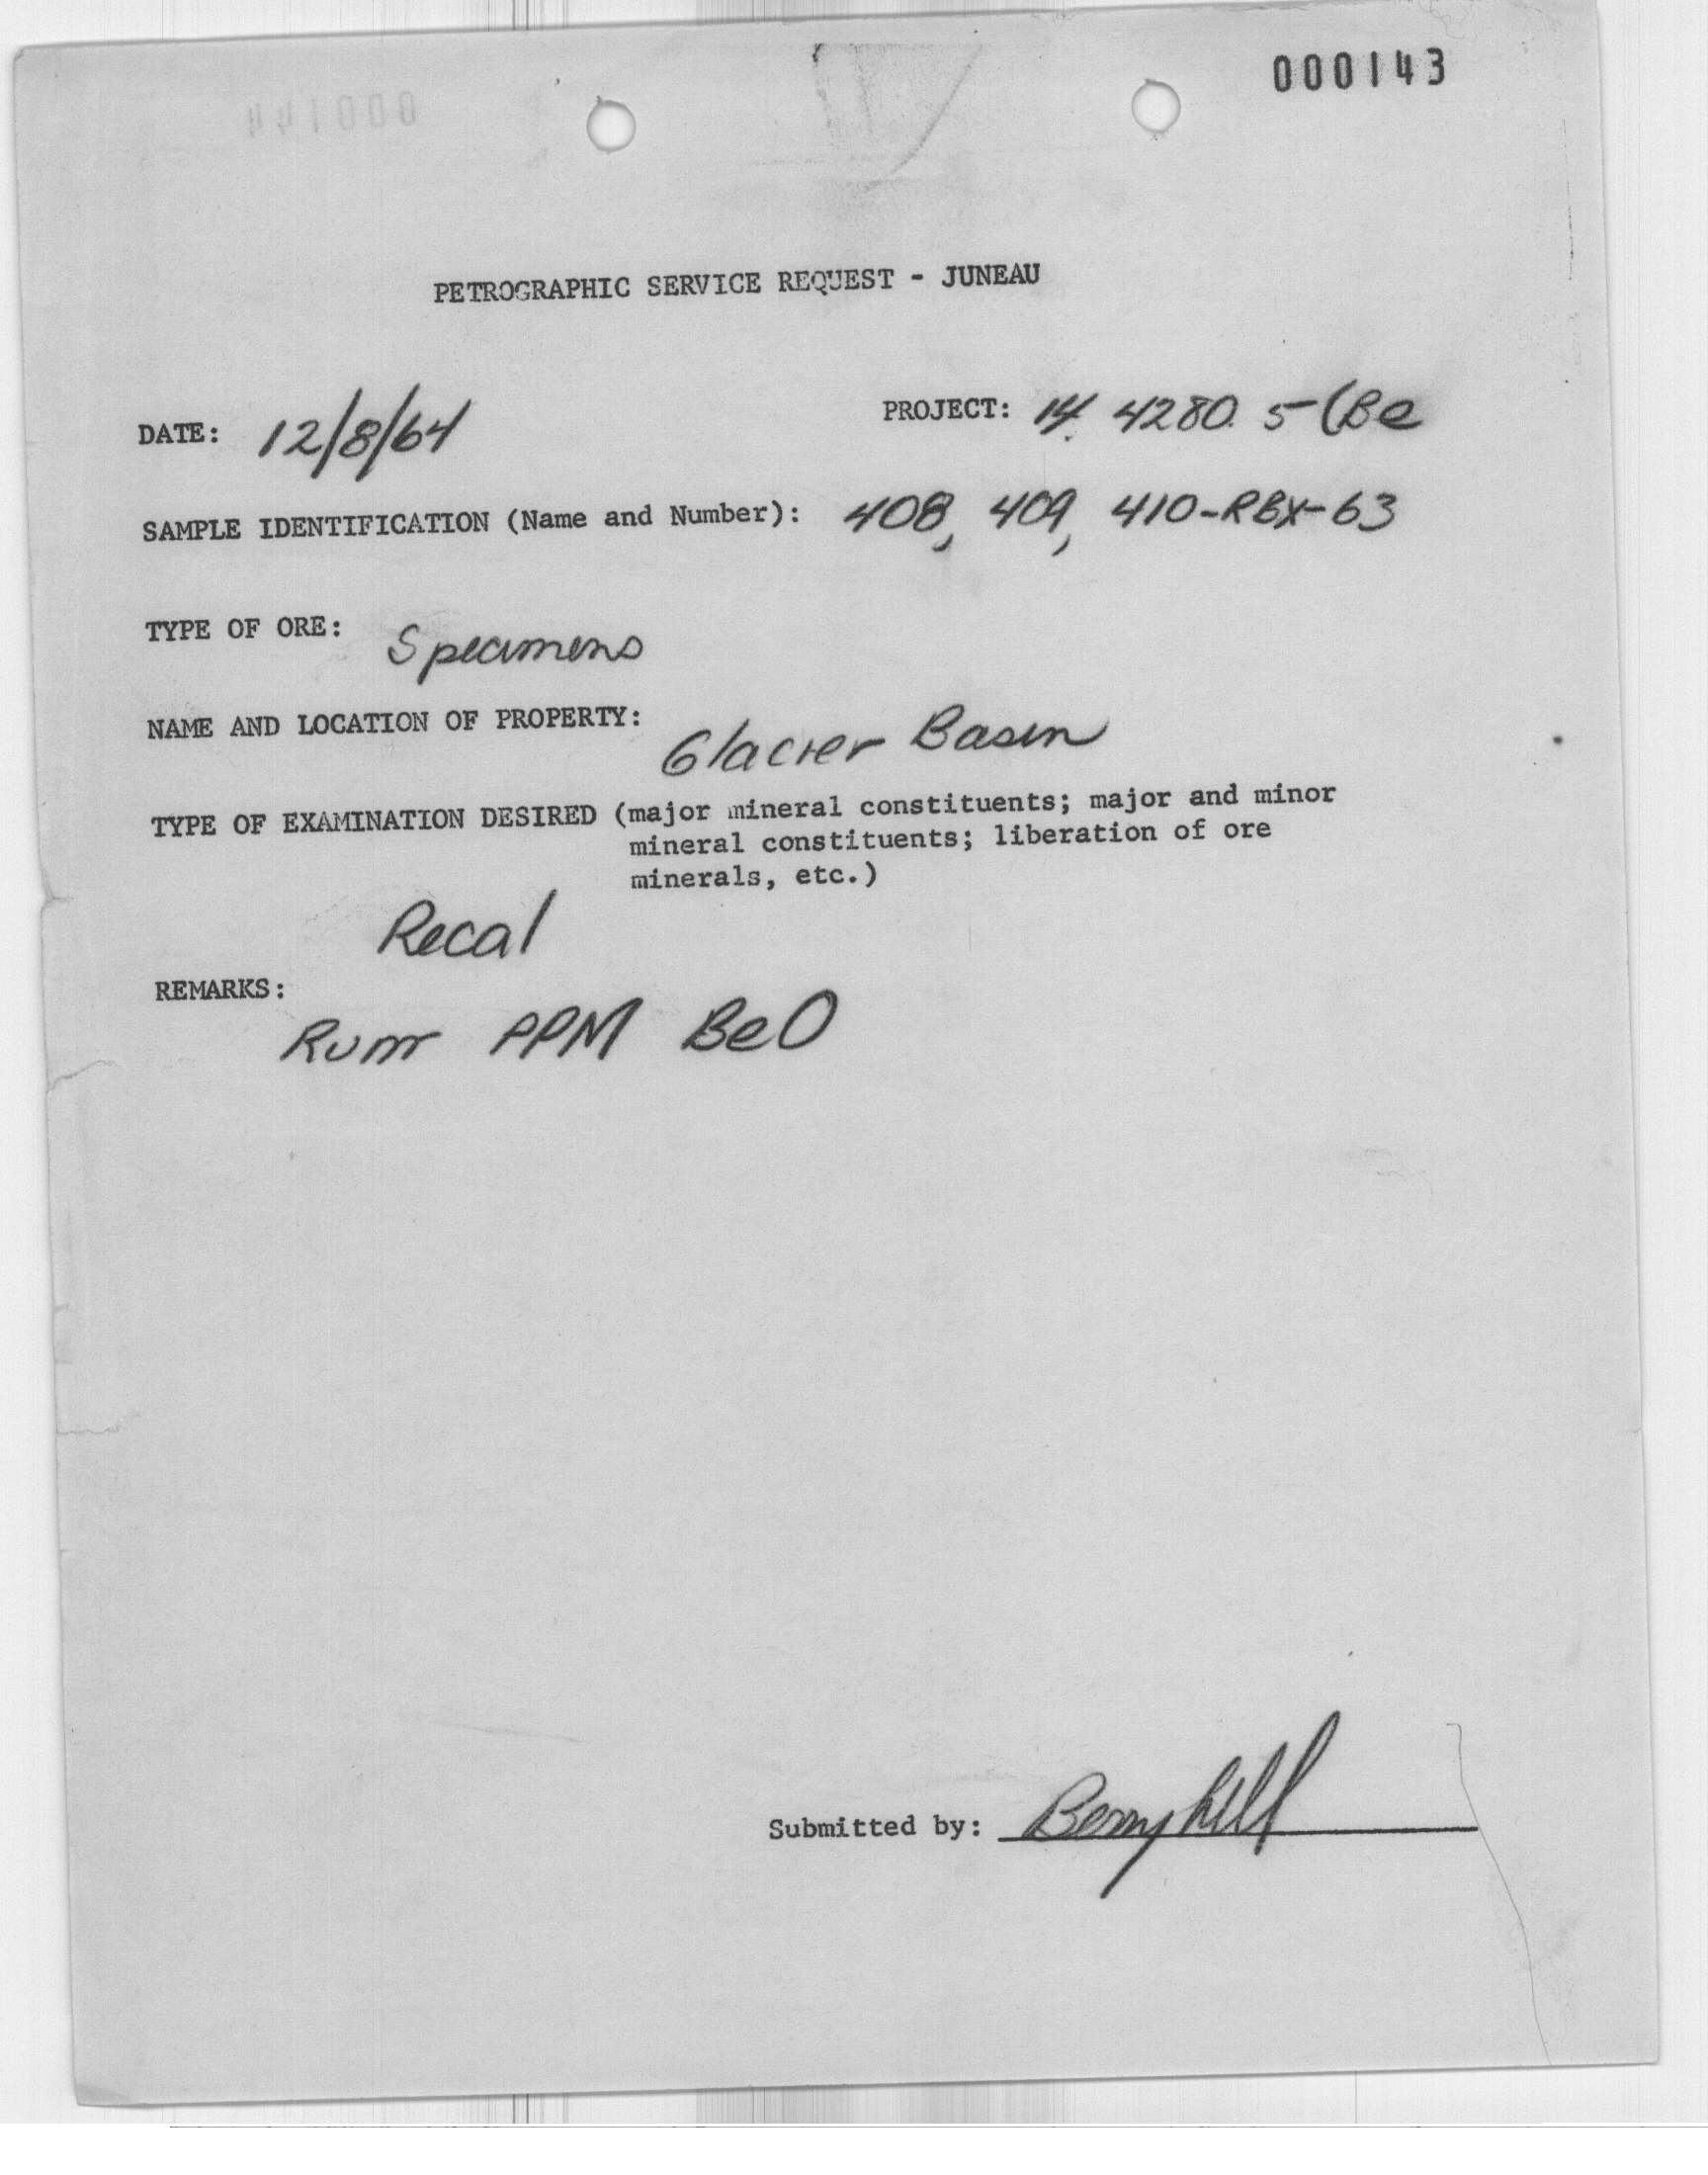 000143
PETROGRAPHIC SERVICE REQUEST - JUNEAU
DATE: 12/8/64 PROJECT: 14. 4280. 5-(Be
SAMPLE IDENTIFICATION (Name and Number): 408, 409, 410-RBX-63
TYPE OF ORE: Specimens
NAME AND LOCATION OF PROPERTY: Glacier Basin
TYPE OF EXAMINATION DESIRED (major mineral constituents; major and minor
mineral constituents; liberation of ore
minerals, etc.)
Recal
REMARKS:
PPM BeO
Submitted by: Berryhill